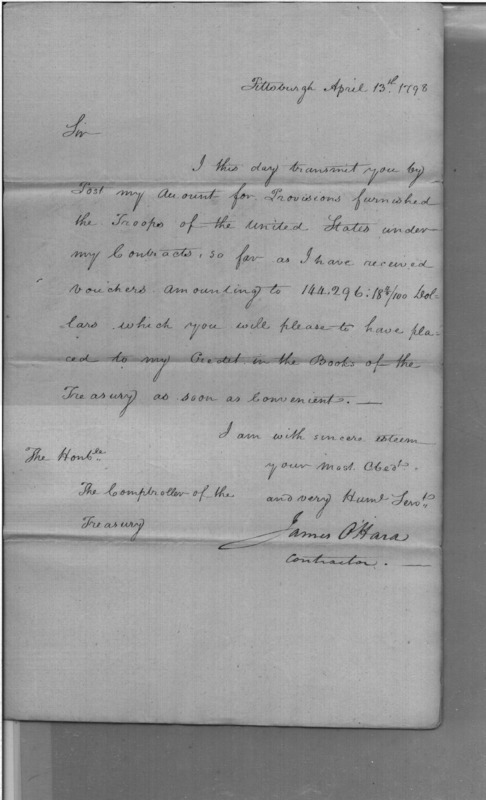 Pittsburgh April 13th. 1798
Sir
I this day transmit you by
Post my Account for Provisions furnished
the Troops of the United States under
my Contracts, so far as I have received
vouchers amounting to 144.296:18/100 Dol-
lars which you will please to have pla-
ced to my Credet in the Books of the
Treasury as soon as Convenient. —
I am with sincere esteem
your most Obedt.
and very Huml Servt.
The Honble.
The Comptroller of the
Treasury
James O'Hara
Contractor. —